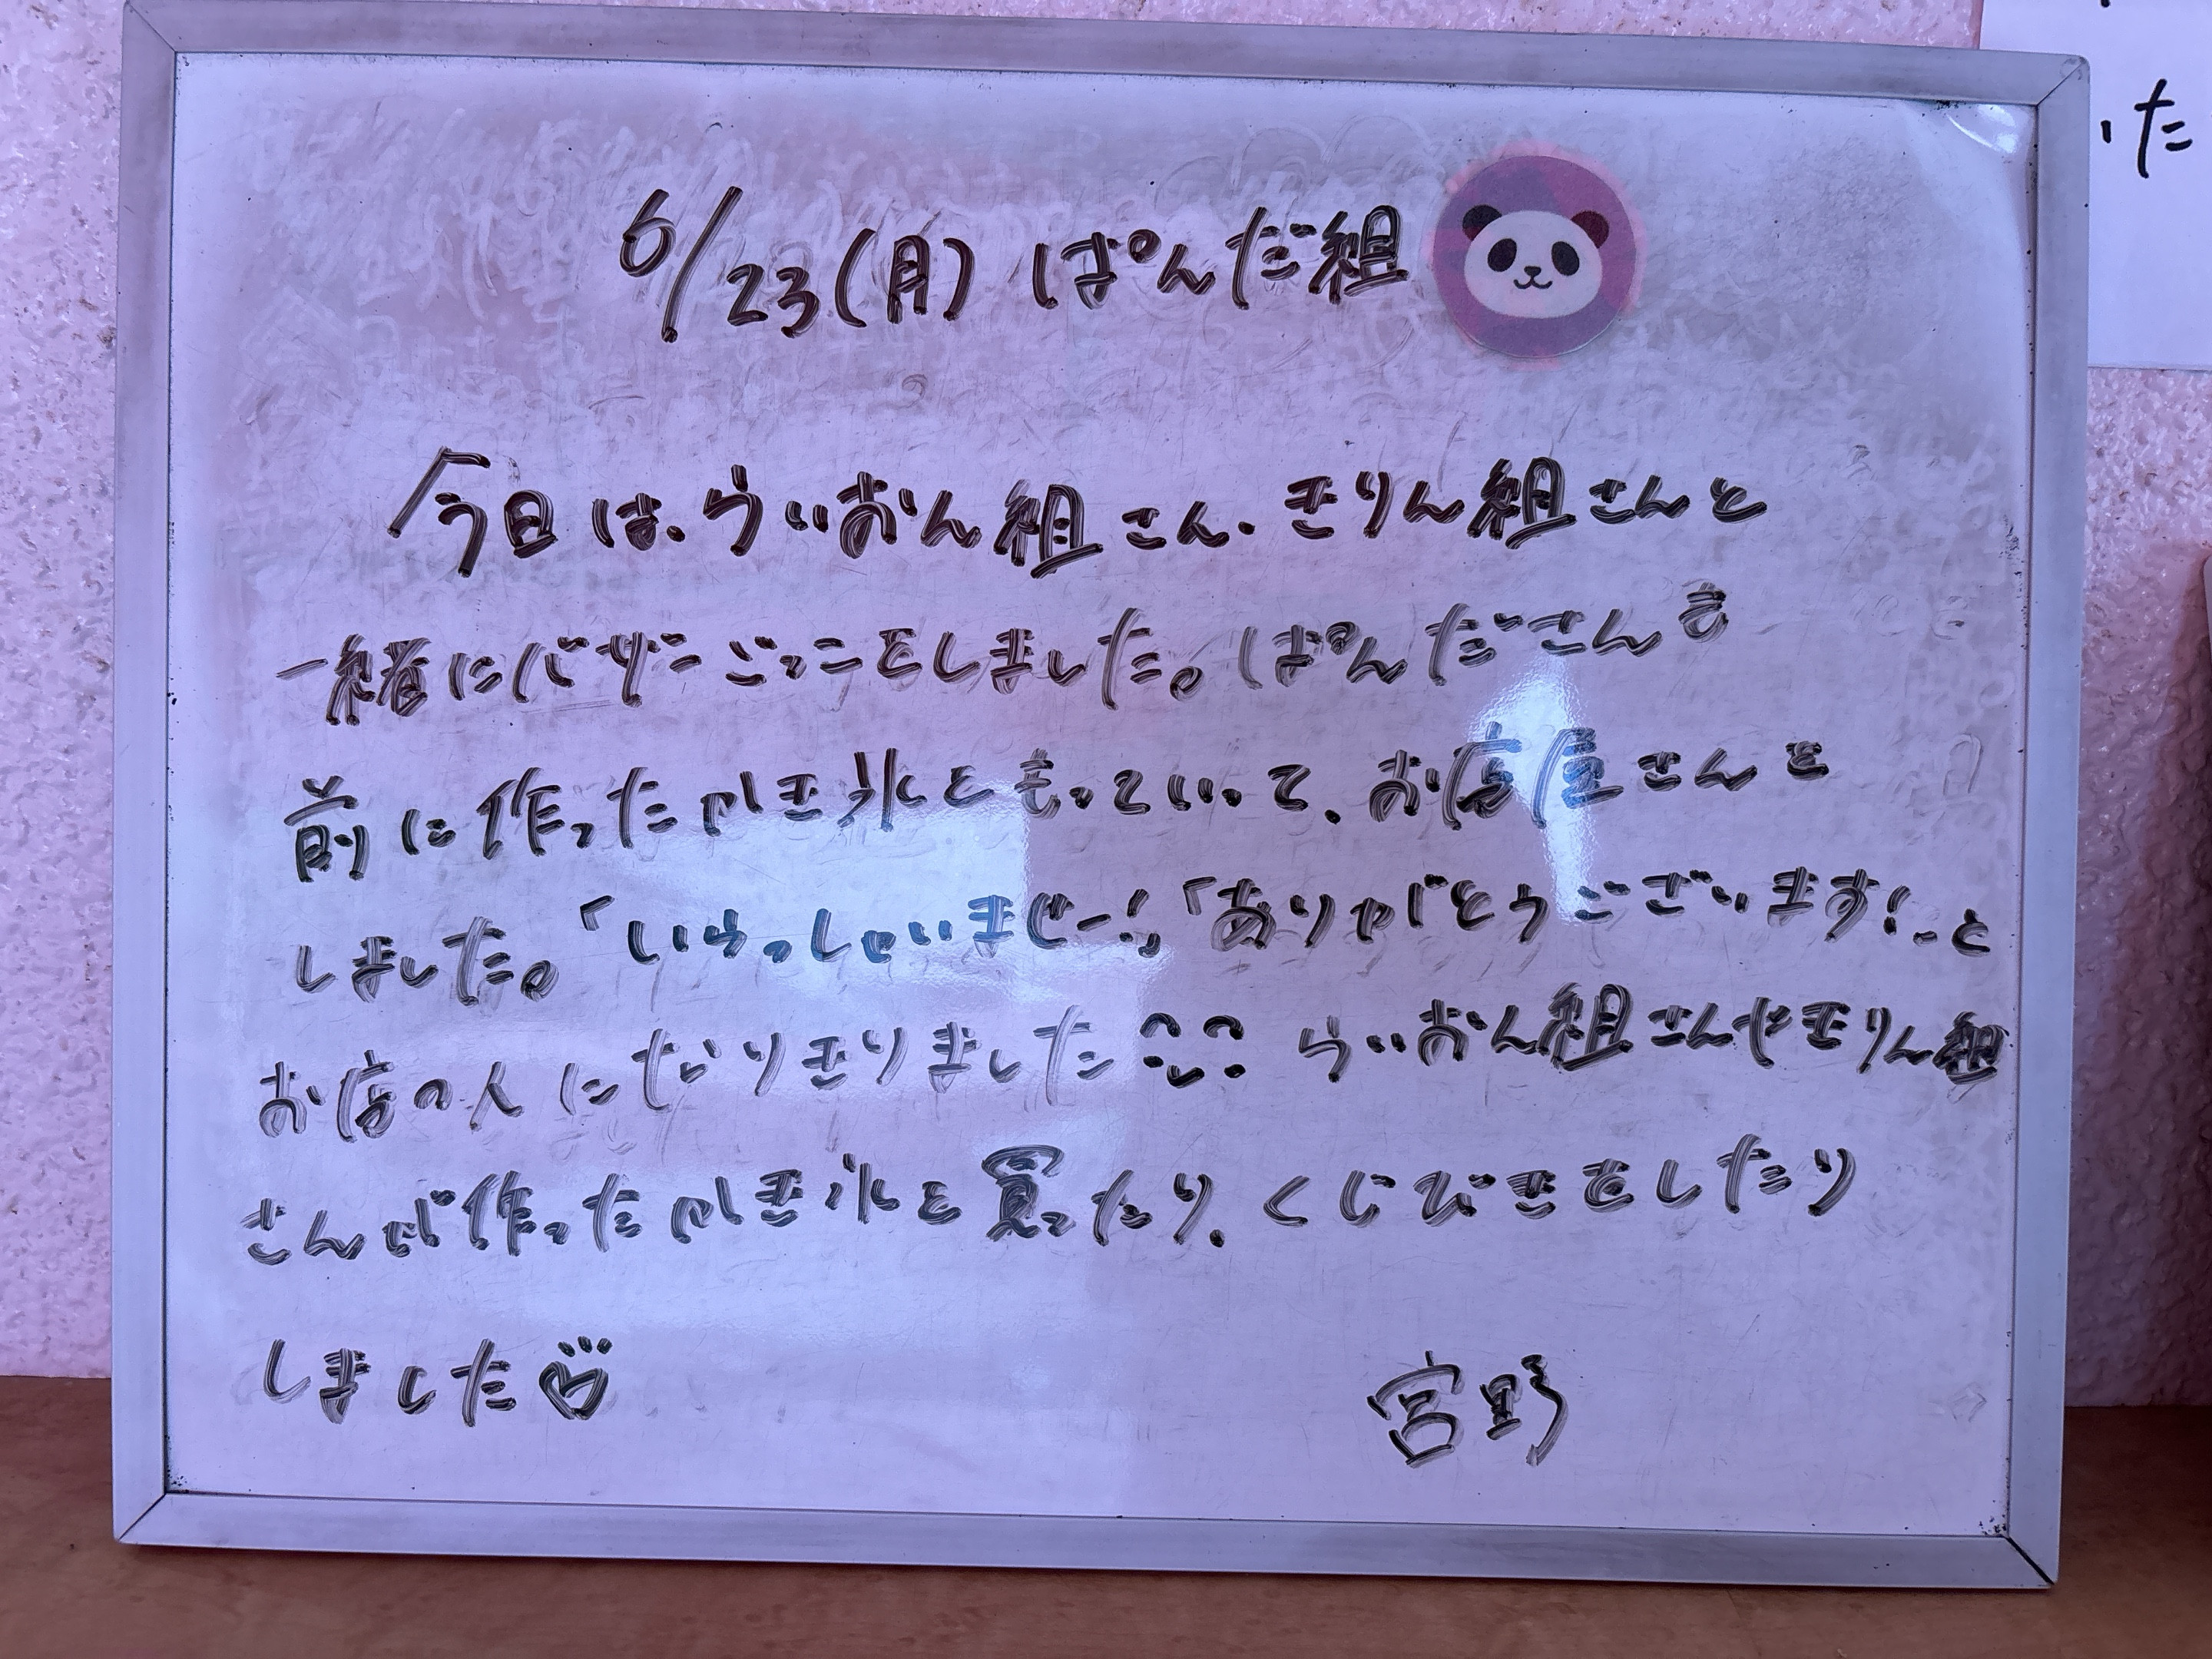 6/23(月) ぱんだ組
今日は、らいおん組さん、きりん組さんと
一緒にバザーごっこをしました。ぱんださんも
前に作ったかき氷をもっていって、お店屋さんを
しました。「いらっしゃいませー!」「ありがとうございます!」と
お店の人になりきりました らいおん組さんやきりん組
さんが作ったかき氷を買ったり、くじびきをしたり
しました♡
宮野
いた